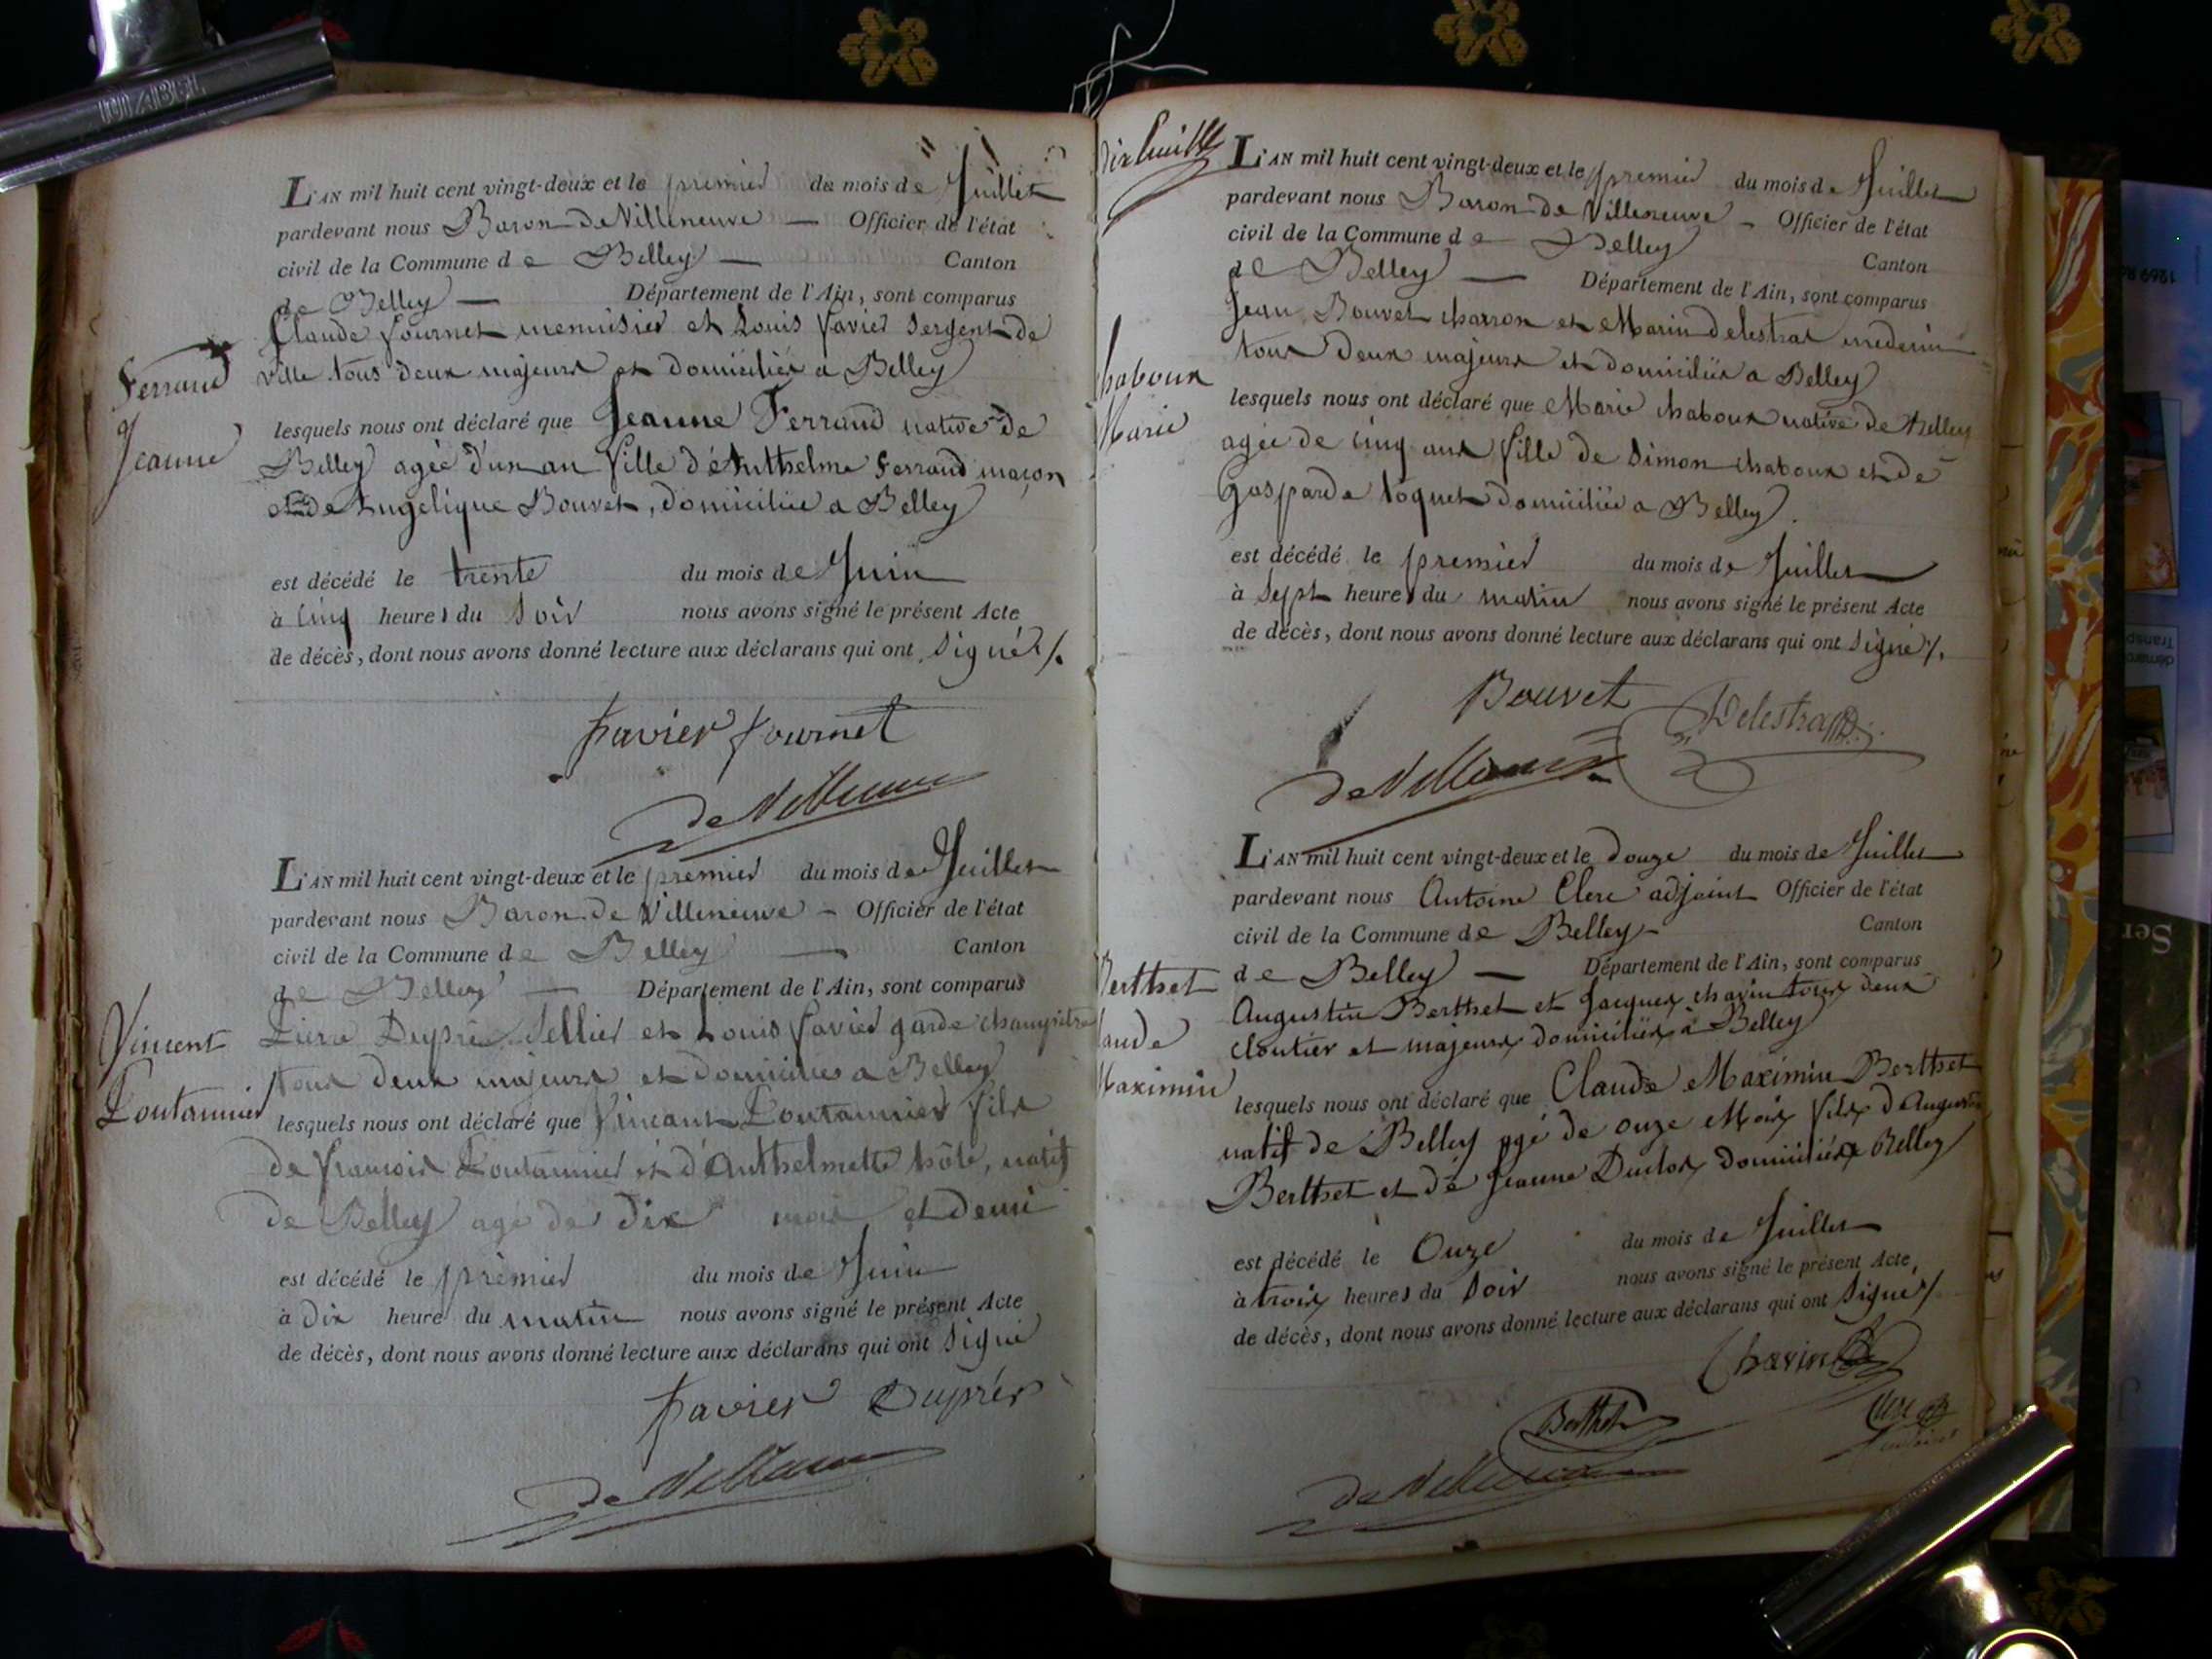 L'AN mil huit cent vingt-deux et le premier du mois de Juillet
pardevant nous Baron de Villeneuve — Officier de l'état
civil de la Commune de Belley — Canton
de Belley — Département de l'Ain, sont comparus
Claude fournet menuisier et Louis favier Sergent de
ville tous deux majeurs et domiciliés a Belley
Ferrand
Jeanne
lesquels nous ont déclaré que Jeanne Ferrand native de
Belley agée d'un an fille d'Anthelme Ferrand maçon
et de Angelique Bouvet, domiciliée a Belley
est décédé le trente du mois de Juin
à Cinq heures du Soir nous avons signé le présent Acte
de décès, dont nous avons donné lecture aux déclarans qui ont Signé ./.
favier fournet
de Villeneuve
L'AN mil huit cent vingt-deux et le premier du mois de Juillet
pardevant nous Baron de Villeneuve — Officier de l'état
civil de la Commune de Belley — Canton
de Belley — Département de l'Ain, sont comparus
Vincent
Poutannier
Pierre Dupré Sellier et Louis favier garde champêtre
tous deux majeurs et domiciliés a Belley
lesquels nous ont déclaré que Vincent Poutannier fils
de francois Poutannier et d'Anthelmette hôte, natif
de Belley agé de dix mois et demi
est décédé le premier du mois de Juin
à dix heure du matin nous avons signé le présent Acte
de décès, dont nous avons donné lecture aux déclarans qui ont Signé
favier Duprés
de Villeneuve
L'AN mil huit cent vingt-deux et le premier du mois de Juillet
pardevant nous Baron de Villeneuve — Officier de l'état
civil de la Commune de Belley
de Belley — Canton
Département de l'Ain, sont comparus
Jean Bouvet charron et Marin delestras medecin
tous deux majeurs et domiciliés a Belley
haboux
Marie
lesquels nous ont déclaré que Marie chaboux native de Belley
agée de cinq ans fille de Simon chaboux et de
Gasparde toquet domiciliée a Belley.
est décédé le premier du mois de Juillet
à Sept heures du matin nous avons signé le présent Acte
de décès, dont nous avons donné lecture aux déclarans qui ont Signé ./.
Bouvet Delestra
de Villeneuve
L'AN mil huit cent vingt-deux et le douze du mois de Juillet
pardevant nous Antoine Clerc adjoint Officier de l'état
civil de la Commune de Belley — Canton
de Belley — Département de l'Ain, sont comparus
Berthet
laude
Maximin
Augustin Berthet et Jacques chavin tous deux
cloutier et majeurs domiciliés à Belley
lesquels nous ont déclaré que Claude Maximin Berthet
natif de Belley agé de onze Mois fils d'Augustin
Berthet et de Jeanne Duclos domiciliés a Belley
est décédé le Onze du mois de Juillet
à trois heures du Soir nous avons signé le présent Acte,
de décès, dont nous avons donné lecture aux déclarans qui ont Signé ./.
Chavin
Berthet
Clerc
de Villeneuve